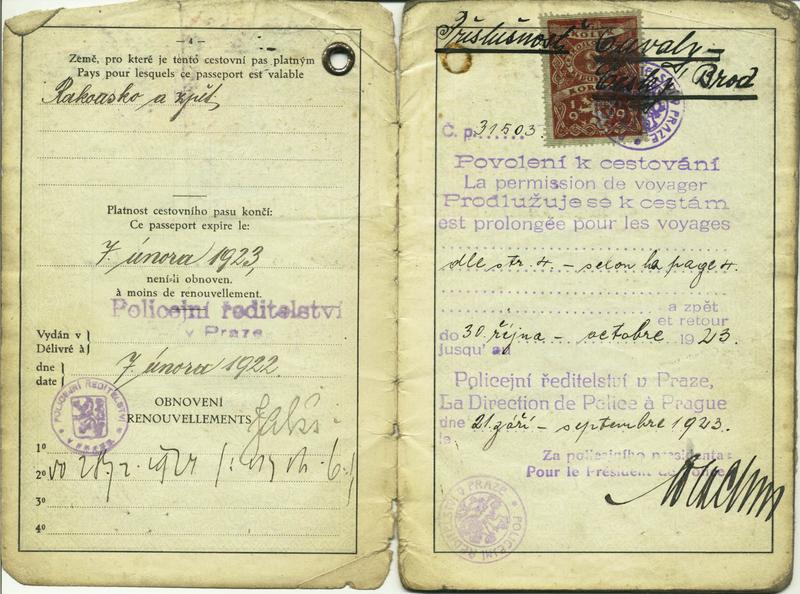 — 4 —
Země, pro které je tento cestovní pas platným
Pays pour lesquels ce passeport est valable
Rakousko a zpět
Platnost cestovního pasu končí:
Ce passeport expire le:
7. února 1923,
není-li obnoven.
à moins de renouvellement.
Policejní ředitelství
v Praze
Vydán v
Délivré à
dne
date
7. února 1922
POLICEJNÍ ŘEDITELSTVÍ
V PRAZE
OBNOVENÍ
RENOUVELLEMENTS
1º
2º
3º
4º
Příslušnost Úvaly -
Český Brod
KORUN
Č. p. 31503.
Povolení k cestování
La permission de voyager
Prodlužuje se k cestám
est prolongée pour les voyages
dle str. 4. – selon la page 4.
a zpět
et retour
do 30. října – octobre 1923.
jusqu' au
Policejní ředitelství v Praze,
La Direction de Police à Prague
dne 21. září – septembre 1923.
le
Za policejního presidenta:
Pour le Président de Police
POLICEJNÍ ŘEDITELSTVÍ V PRAZE